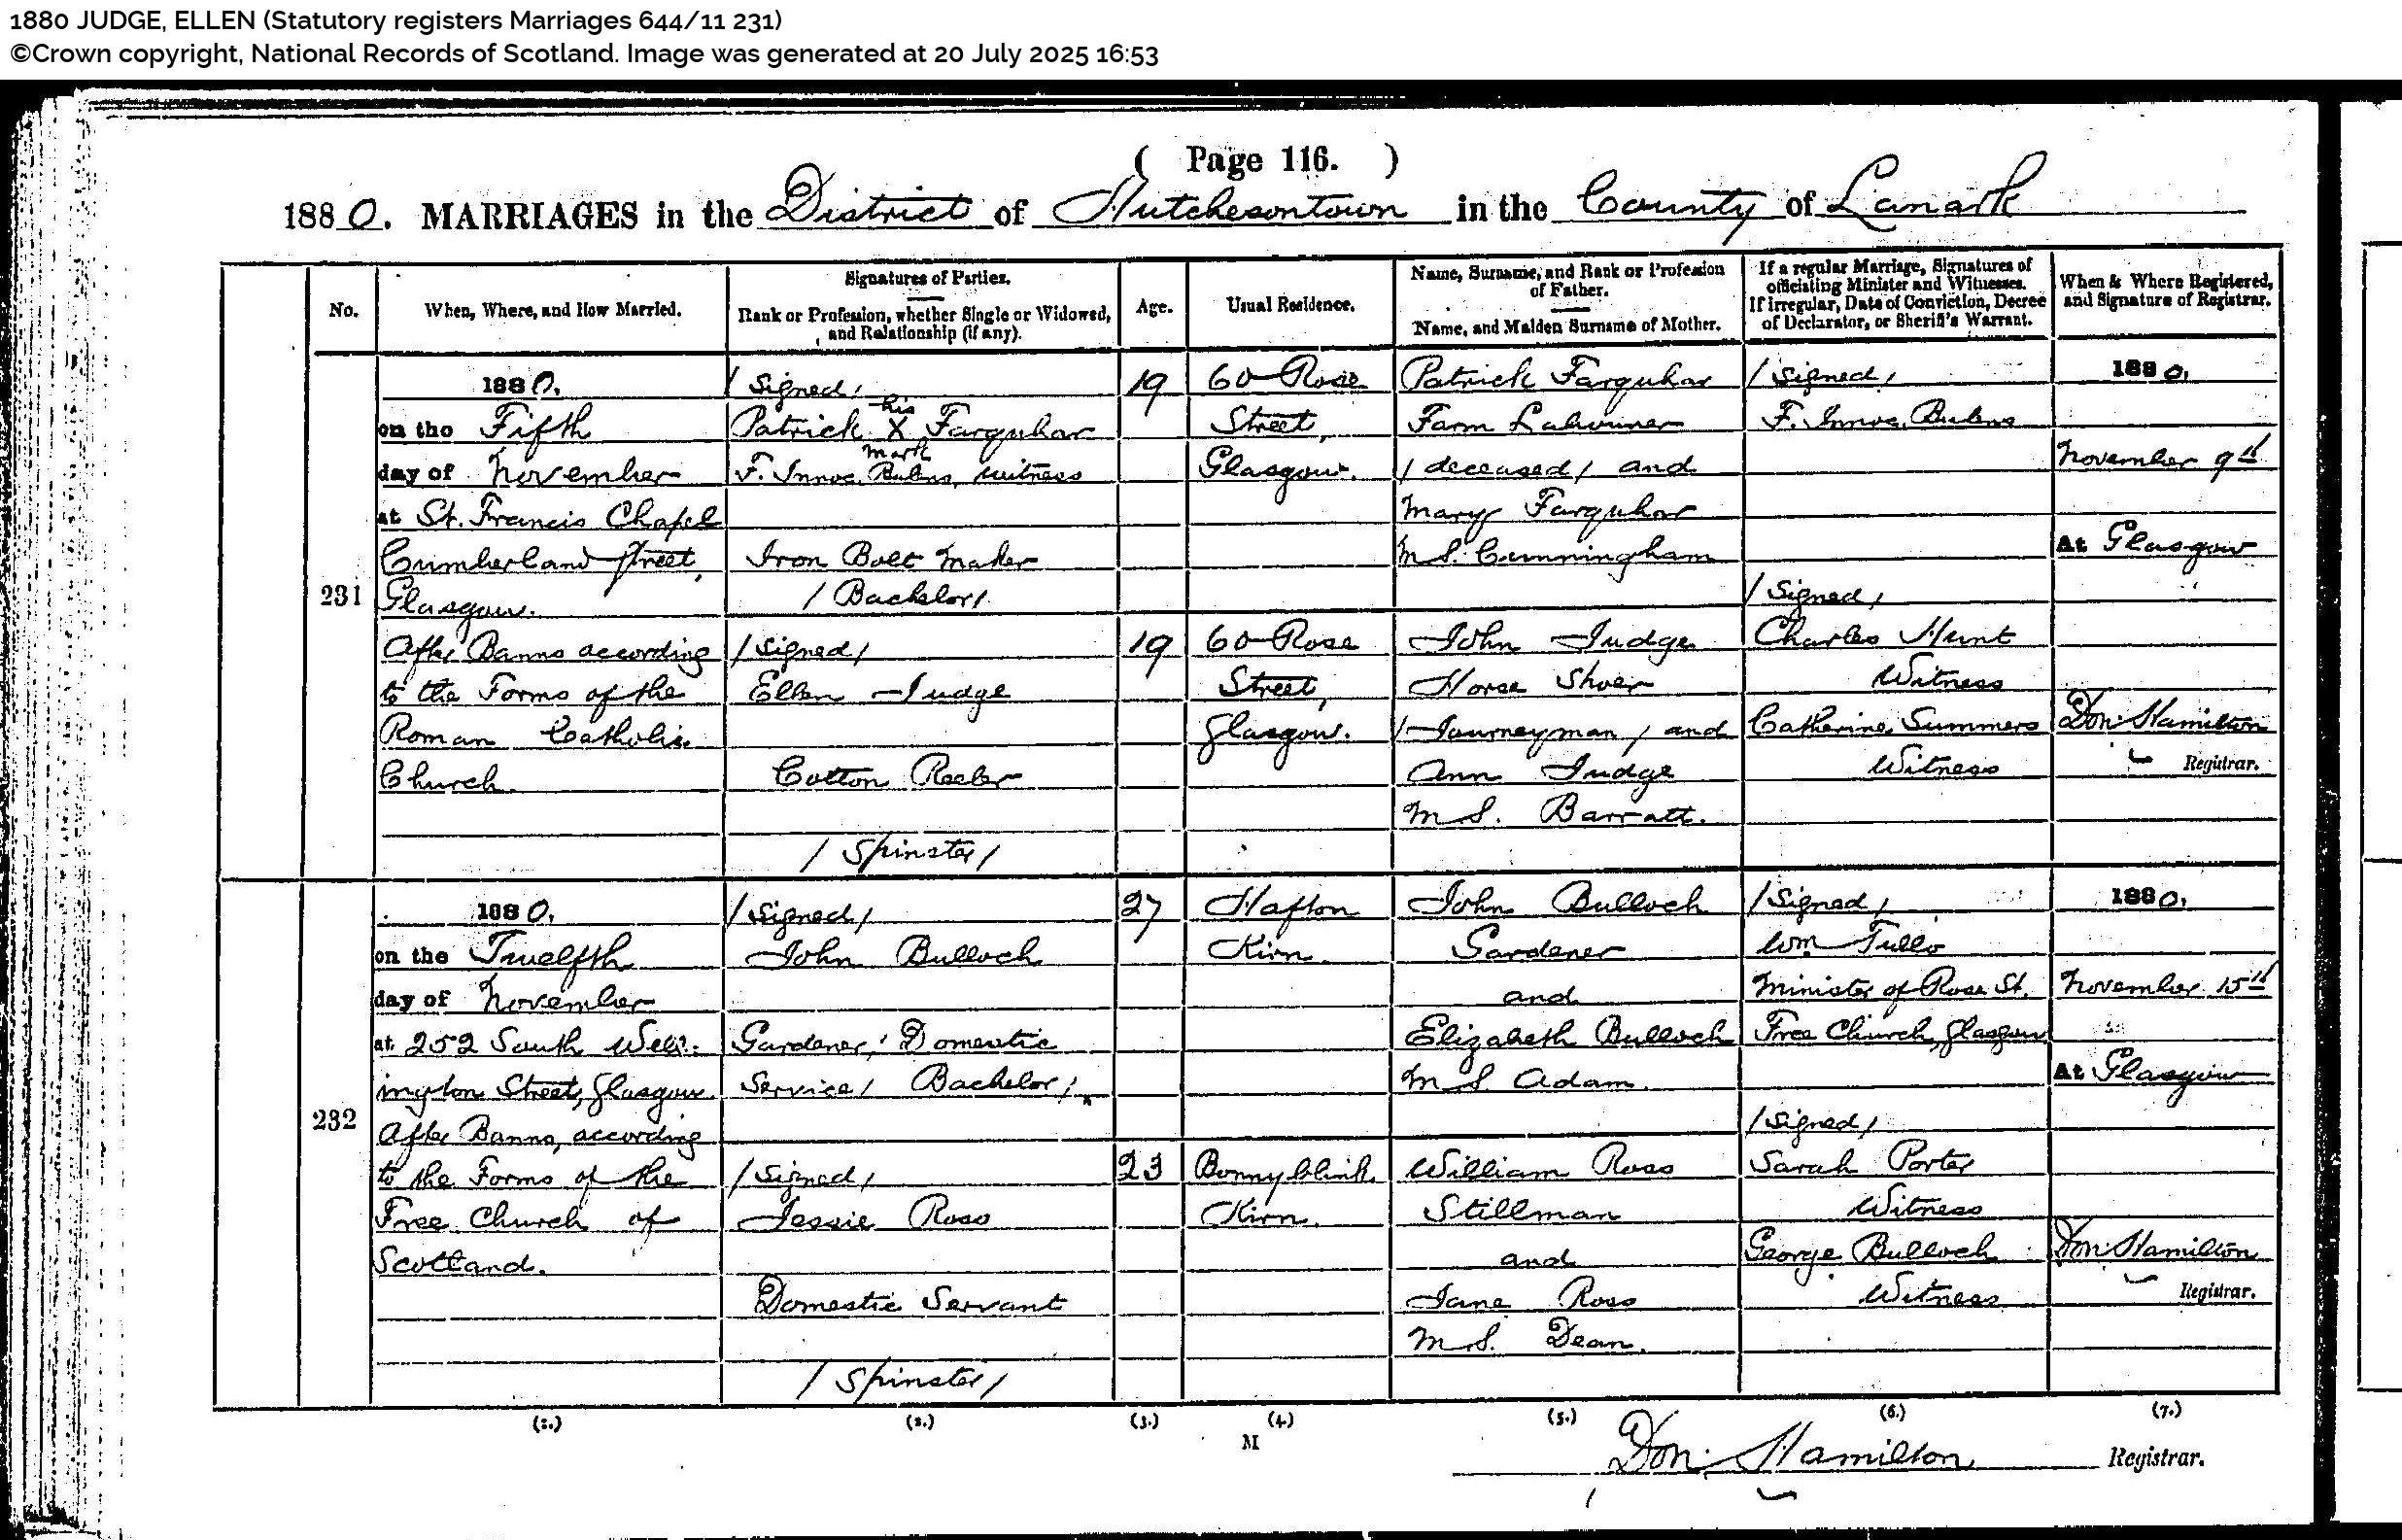 1880 JUDGE, ELLEN (Statutory registers Marriages 644/11 231)
©Crown copyright, National Records of Scotland. Image was generated at 20 July 2025 16:53
( Page 116. )
1880. MARRIAGES in the District of Hutchesontown in the County of Lanark
No.
When, Where, and How Married.
Signatures of Parties.
Rank or Profession, whether Single or Widowed,
and Relationship (if any).
Age.
Usual Residence.
Name, Surname, and Rank or Profession
of Father.
Name, and Maiden Surname of Mother.
If a regular Marriage, Signatures of
officiating Minister and Witnesses.
If irregular, Date of Conviction, Decree
of Declarator, or Sheriff's Warrant.
When & Where Registered,
and Signature of Registrar.
231
1880.
on the Fifth
day of November
at St. Francis Chapel
Cumberland Street,
Glasgow.
After Banns according
to the Forms of the
Roman Catholic
Church.
/Signed/
his
Patrick X Farquhar
mark
F. Innoc. witness
Iron Bolt Maker
/Bachelor/
19
60 Rose
Street,
Glasgow.
Patrick Farquhar
Farm Labourer
/deceased/ and
Mary Farquhar
M.S. Cunningham
/Signed/
F. Innoc.
1880.
November 9th
At Glasgow
/Signed/
Ellen Judge
Cotton Reeler
/Spinster/
19
60 Rose
Street,
Glasgow.
John Judge
Horse Shoer
/Journeyman/ and
Ann Judge
M.S. Barratt.
/Signed/
Charles Hunt
Witness
Catherine Summers
Witness
Don. Hamilton
Registrar.
232
1880.
on the Twelfth
day of November
at 252 South Well-
ington Street, Glasgow.
After Banns, according
to the Forms of the
Free Church of
Scotland.
/Signed/
John Bulloch
Gardener, / Domestic
Service/ Bachelor/.
27
Hafton
Kirn.
John Bulloch
Gardener
and
Elizabeth Bulloch
M.S. Adam.
/Signed/
Wm. Tullo
Minister of Rose St.
Free Church, Glasgow
1880.
November 15th
At Glasgow
/Signed/
Jessie Ross
Domestic Servant
/Spinster/
23
Bonnyblink,
Kirn.
William Ross
Stillman
and
Jane Ross
M.S. Dean.
/Signed/
Sarah Porter
Witness
George Bulloch
Witness
Don. Hamilton
Registrar.
(1.) (2.) (3.) (4.) (5.) (6.) (7.)
M
Don. Hamilton Registrar.